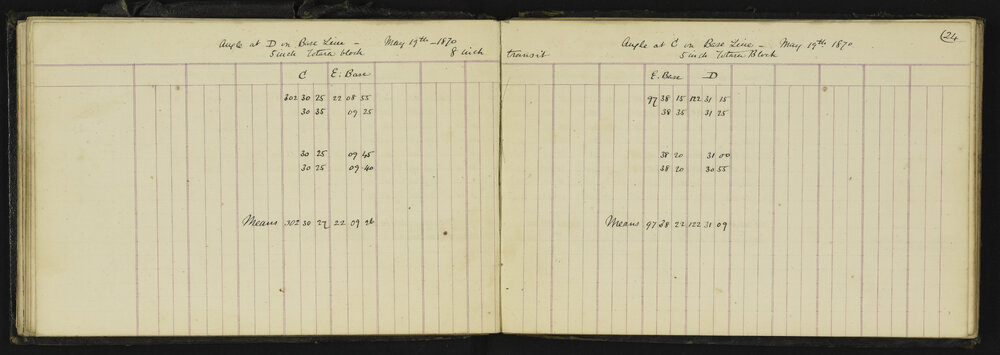 Angle at D on Base Line - May 19th - 1870
5 inch Totara block 8 inch
C E. Base
302 30 25 22 08 55
30 35 09 25
30 25 09 45
30 25 09 40
Means 302 30 27 22 09 26
24
Angle at C on Base Line - May 19th 1870
transit 5 inch Totara Block
E. Base D
97 38 15 122 31 15
38 35 31 25
38 20 31 00
38 20 30 55
Means 97 38 22 122 31 09